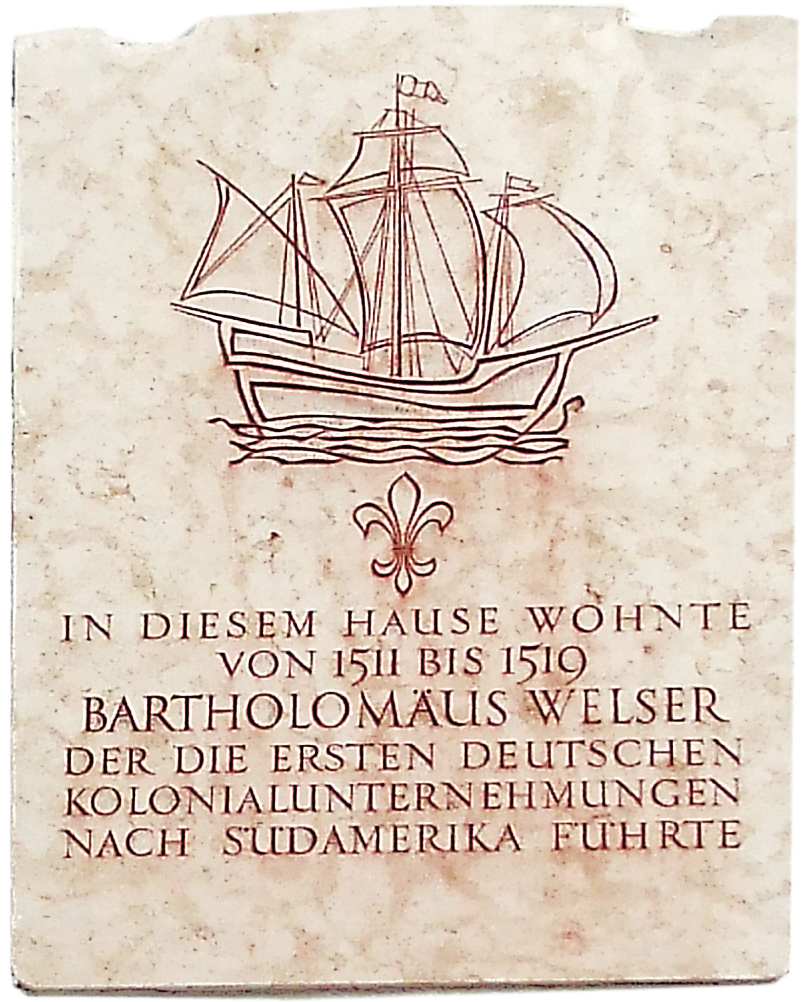 IN DIESEM HAUSE WOHNTE
VON 1511 BIS 1519
BARTHOLOMÄUS WELSER
DER DIE ERSTEN DEUTSCHEN
KOLONIALUNTERNEHMUNGEN
NACH SÜDAMERIKA FÜHRTE